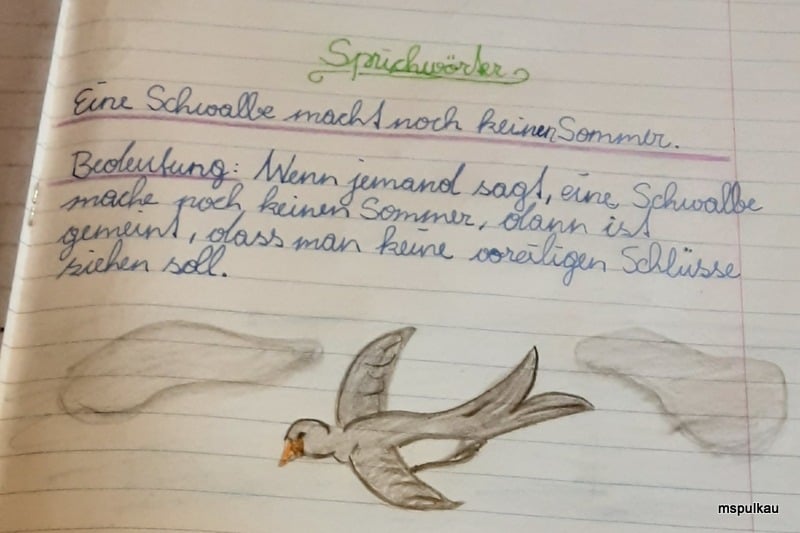 Sprichwörter
Eine Schwalbe macht noch keinen Sommer.
Bedeutung: Wenn jemand sagt, eine Schwalbe
mache noch keinen Sommer, dann ist
gemeint, dass man keine voreiligen Schlüsse
ziehen soll.
mspulkau